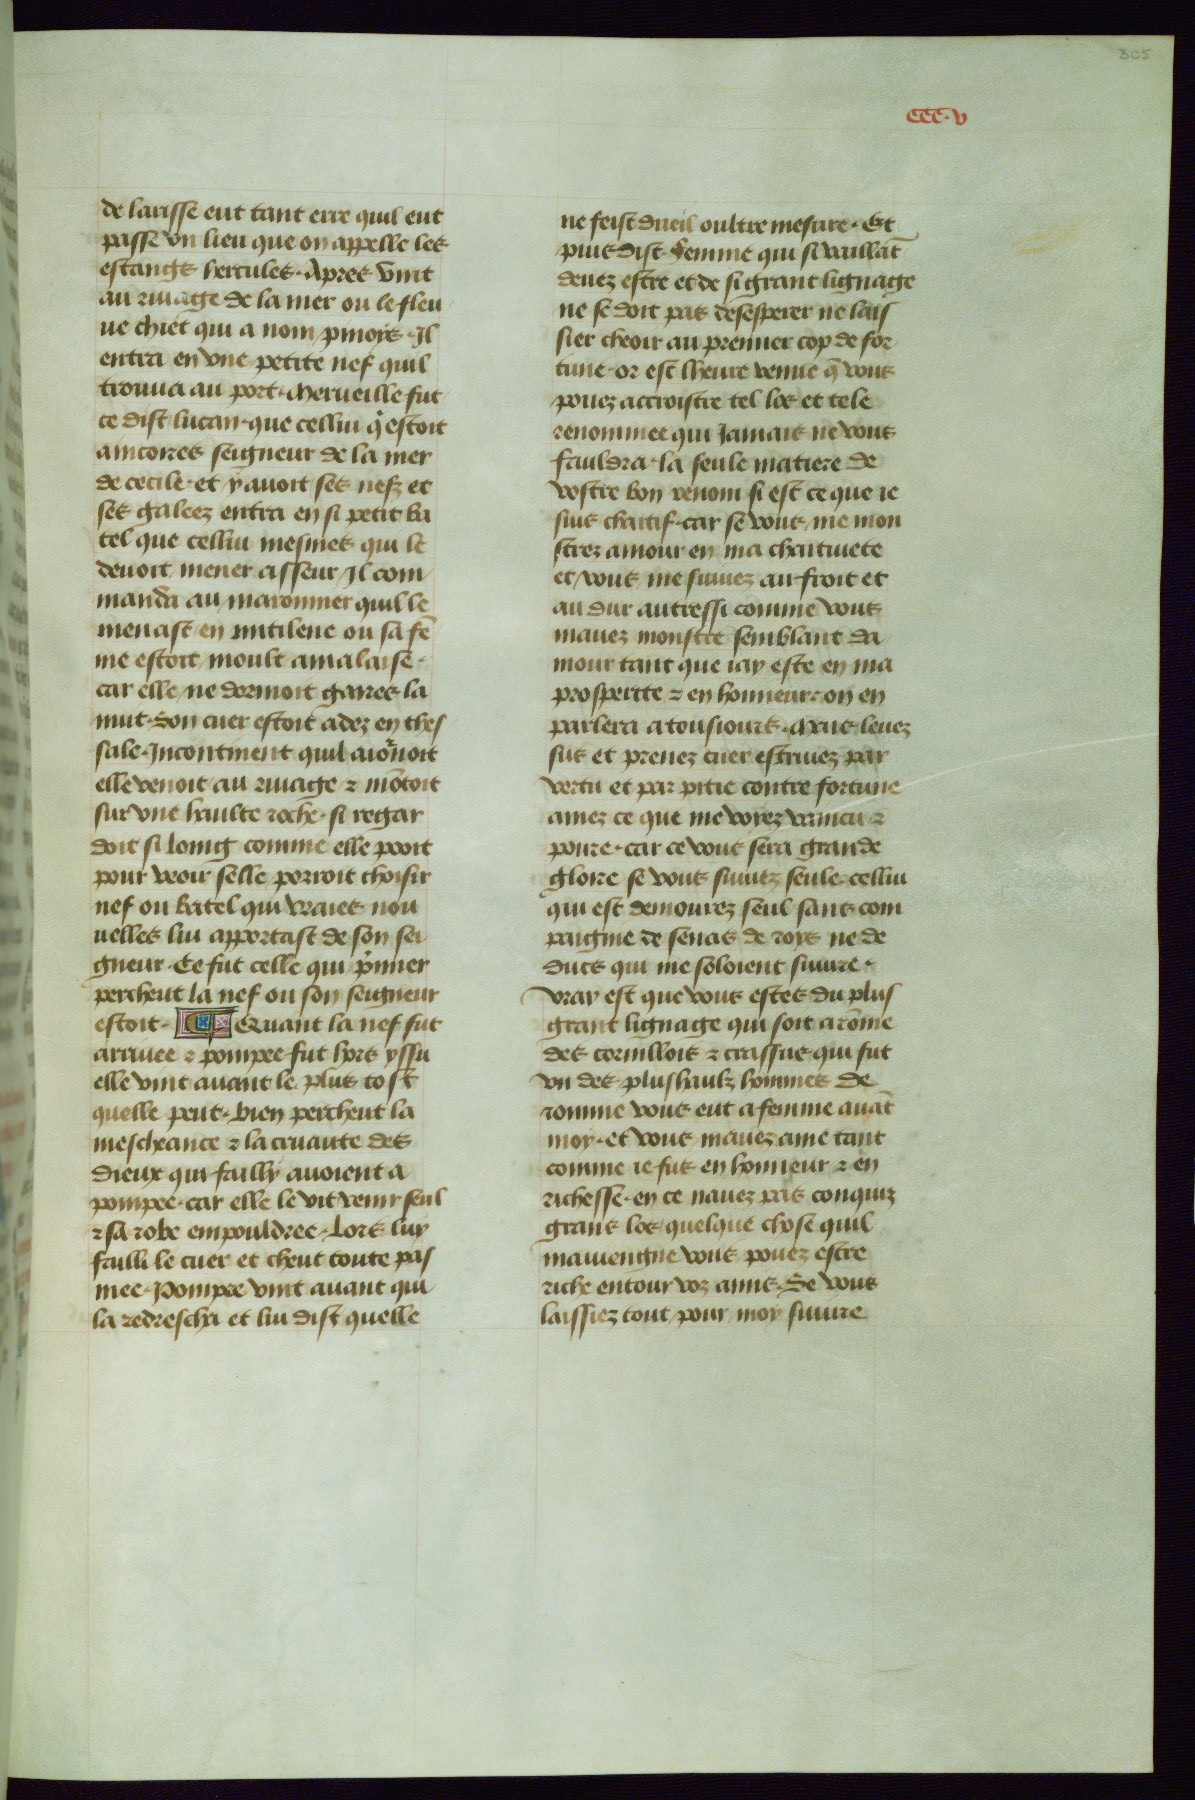 305
ccc·v
de larisse eut tant erre quil eut
passe vn lieu que on appelle les
estangs hercules· Apres vint
au riuage de la mer ou le fleu
ue chiet qui a nom pinoys· Il
entra en vne petite nef quil
trouua au port· Merueille fut
ce dist lucan· que cellui q̓ estoit
aincores seigneur de la mer
de cecile· et y auoit ses nefz et
ses galeez entra en si petit ba
tel que cellui mesmes qui le
deuoit mener asseur Il com
manda au maronnier quil le
menast en mitilene ou sa fē
me estoit moult amalaise·
car elle ne dormoit gaires la
nuit· Son cuer estoit adez en thes
sale· Incontinent quil aiōrnoit
elle venoit au riuage ⁊ mōtoit
sur vne haulte roche· si regar
doit si loing comme elle pooit
pour veoir selle porroit choisir
nef ou batel qui vraies nou
uelles lui apportast de son sei
gneur· Ce fut celle qui p̓mier
percheut la nef ou son seigneur
estoit· Quant la nef fut
arriuee ⁊ pompee fut hors yssu
elle vint auant le plus tost
quelle peut· bien percheut la
mescheance ⁊ la cruaute des
dieux qui failly auoient a
pompee· car elle le vit venir seul
⁊ sa robe empouldree· Lors luy
failli le cuer et cheut toute pas
mee· Pompee vint auant qui
la redrescha et lui dist quelle
ne feist dueil oultre mesure· Et
puis dist· Femme qui si vaillāt
deuez estre et de si grant lignage
ne se doit pas desesperer ne lais
sier cheoir au premier cop de for
tune· or est lheure venue q̄ vous
pouez accroistre tel los et tele
renommee qui Jamais ne vous
fauldra· la seule matiere de
vostre bon renom si est ce que ie
suis chaitif· car se vous me mon
strez amour en ma chaitiuete
et vous me suiuez au froit et
au dur autressi comme vous
mauez monstre semblant da
mour tant que iay este en ma
prosperite ⁊ en honneur· on en
parlera a tousiours· Mais leuez
sus et prenez cuer estriuez par
vertu et par pitie contre fortune
amez ce que me voyez vaincu ⁊
poure· car ce vous sera grande
gloire se vous suiuez seule cellui
qui est demourez seul sans com
paignie de senas de roys ne de
ducs qui me soloient suiure·
vray est que vous estes du plus
grant lignage qui soit a rōme
des cornillois ⁊ crassus qui fut
vn des plus haulz hommes de
romme vous eut a femme auāt
moy· et vous mauez ame tant
comme ie fus en honneur ⁊ en
richesse· en ce nauez pas conquiz
grans los· quelque chose quil
mauiengne vous pouez estre
riche entour voz amis· Se vous
laissiez tout pour moy suiure